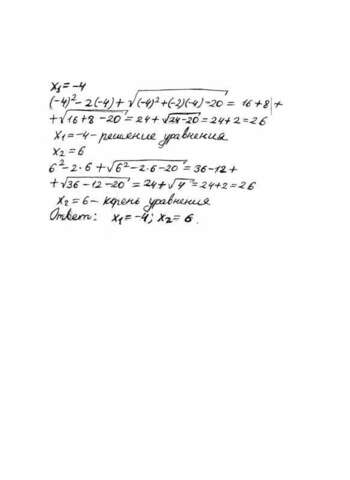 x₁ = -4
(-4)² - 2(-4) + √((-4)² + (-2)(-4) - 20) = 16 + 8 +
+ √(16 + 8 - 20) = 24 + √(24 - 20) = 24 + 2 = 26
x₁ = -4 - решение уравнения
x₂ = 6
6² - 2·6 + √(6² - 2·6 - 20) = 36 - 12 +
+ √(36 - 12 - 20) = 24 + √4 = 24 + 2 = 26
x₂ = 6 - корень уравнения
Ответ: x₁ = -4; x₂ = 6.